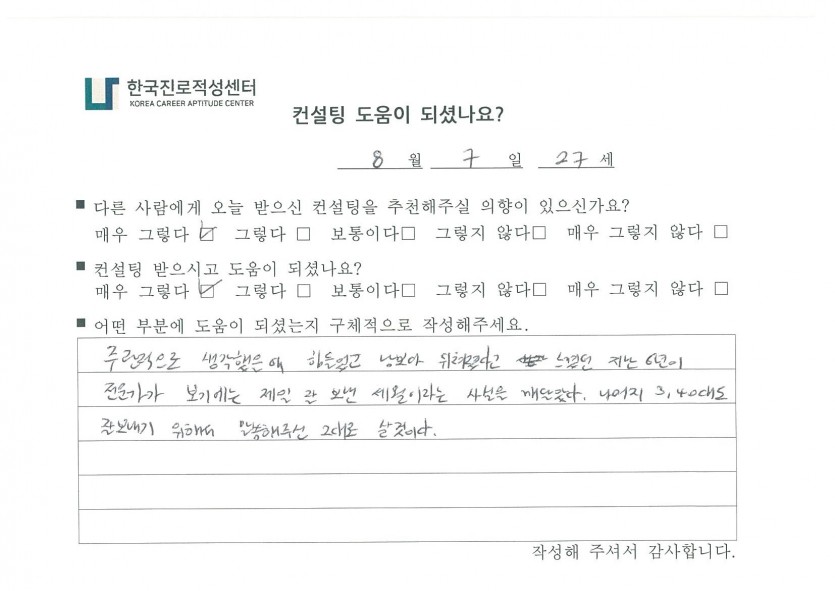 한국진로적성센터
KOREA CAREER APTITUDE CENTER
컨설팅 도움이 되셨나요?
8 월 7 일 27 세
■ 다른 사람에게 오늘 받으신 컨설팅을 추천해주실 의향이 있으신가요?
매우 그렇다 ☑ 그렇다 □ 보통이다□ 그렇지 않다□ 매우 그렇지 않다 □
■ 컨설팅 받으시고 도움이 되셨나요?
매우 그렇다 ☑ 그렇다 □ 보통이다□ 그렇지 않다□ 매우 그렇지 않다 □
■ 어떤 부분에 도움이 되셨는지 구체적으로 작성해주세요.
주관적으로 생각했을 때 힘들었고 남보다 뒤쳐졌다고 느꼈던 지난 6년이
전문가가 보기에는 제일 잘 보낸 세월이라는 사실을 깨달았다. 나머지 3,40대도
잘보내기 위해서 말씀해주신 그대로 살것이다.
작성해 주셔서 감사합니다.